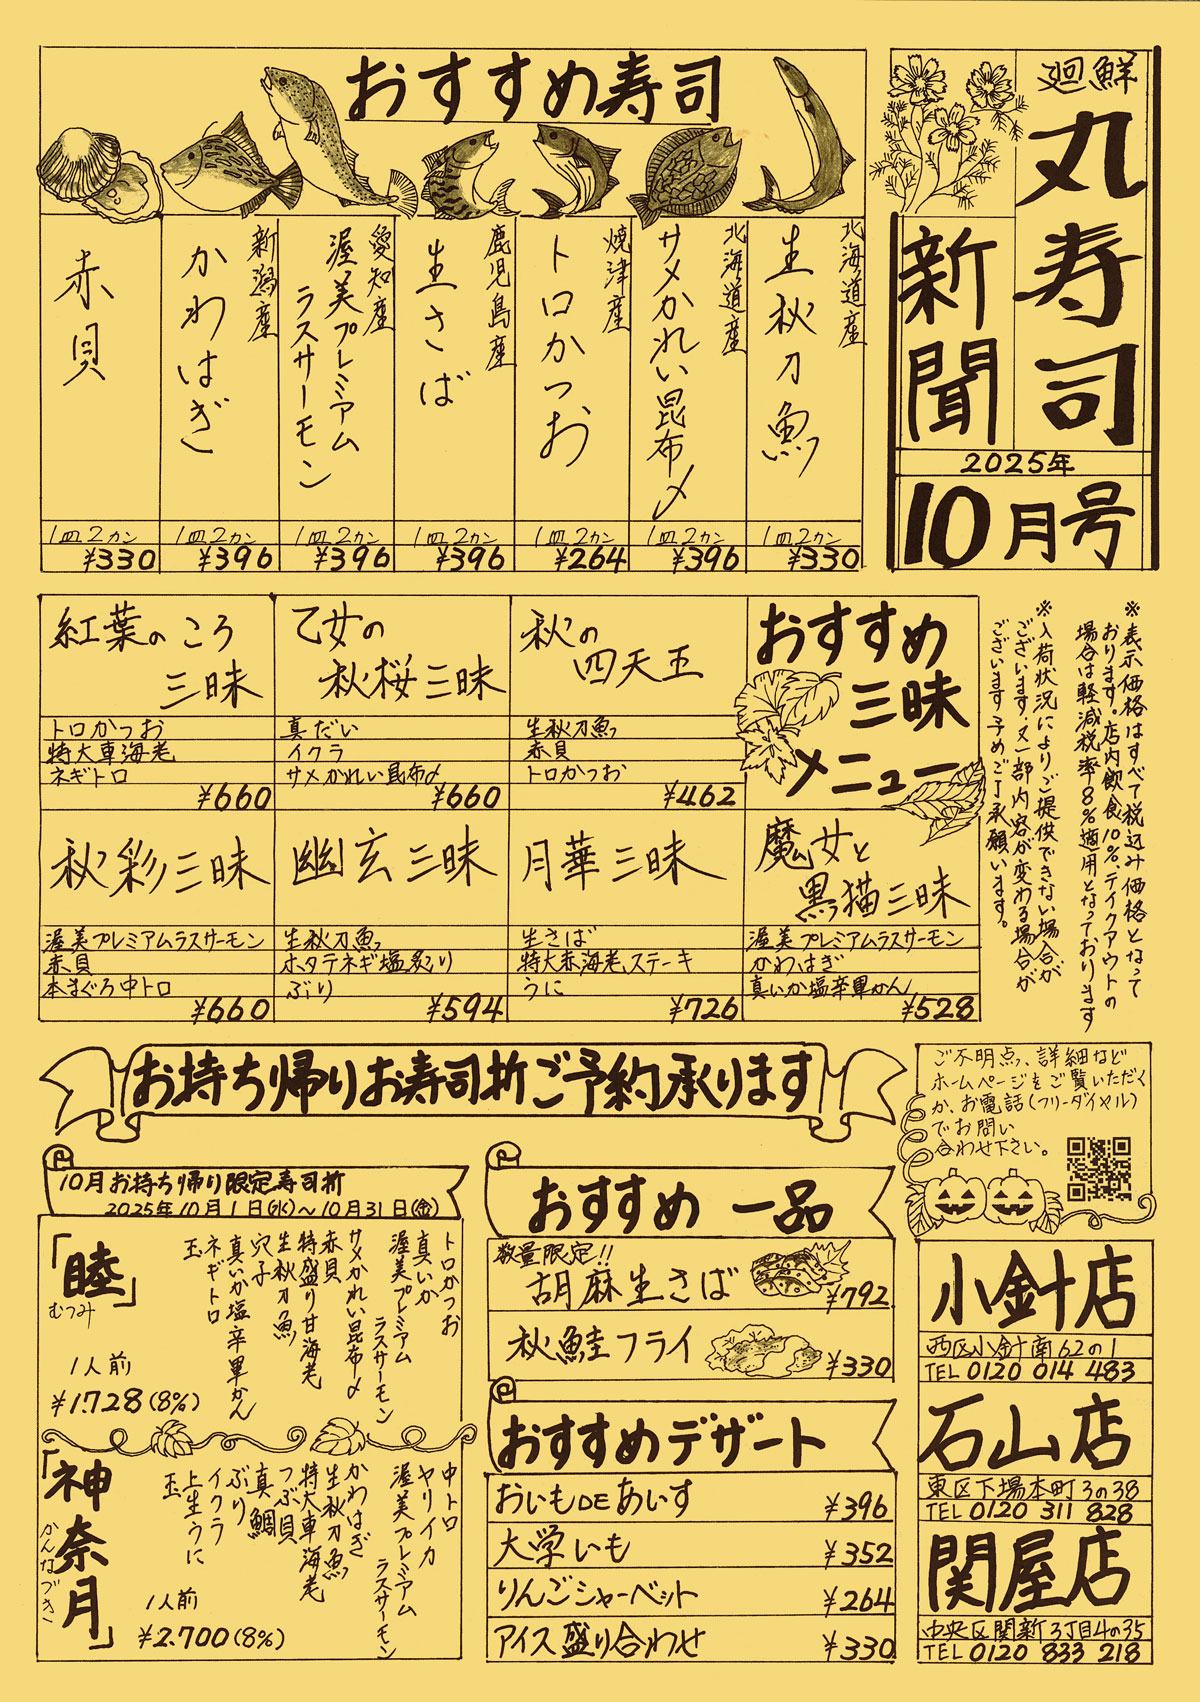 廻鮮
丸寿司
新聞
2025年
10月号
おすすめ寿司
北海道産
生秋刀魚
1皿2カン
¥330
北海道産
サメかれい昆布〆
1皿2カン
¥396
焼津産
トロかつお
1皿2カン
¥264
鹿児島産
生さば
1皿2カン
¥396
愛知産
渥美プレミアム
ラスサーモン
1皿2カン
¥396
新潟産
かわはぎ
1皿2カン
¥396
赤貝
1皿2カン
¥330
※表示価格はすべて税込み価格となって
おります。店内飲食10%、テイクアウトの
場合は軽減税率8%適用となっております
※入荷状況によりご提供できない場合が
ございます。又、一部内容が変わる場合が
ございます予めご了承願います。
おすすめ
三昧
メニュー
秋の
四天王
生秋刀魚
赤貝
トロかつお
¥462
乙女の
秋桜三昧
真だい
イクラ
サメかれい昆布〆
¥660
紅葉のころ
三昧
トロかつお
特大車海老
ネギトロ
¥660
魔女と
黒猫三昧
渥美プレミアムラスサーモン
かわはぎ
真いか塩辛軍かん
¥528
月華三昧
生さば
特大赤海老ステーキ
うに
¥726
幽玄三昧
生秋刀魚
ホタテネギ塩炙り
ぶり
¥594
秋彩三昧
渥美プレミアムラスサーモン
赤貝
本まぐろ中トロ
¥660
お持ち帰りお寿司折ご予約承ります
10月お持ち帰り限定寿司折
2025年10月1日(水)~10月31日(金)
「睦」
むつみ
1人前
¥1.728(8%)
トロかつお
真いか
渥美プレミアム
ラスサーモン
サメかれい昆布〆
赤貝
特盛り甘海老
生秋刀魚
穴子
真いか塩辛軍かん
ネギトロ
玉
「神奈月」
かんなづき
1人前
¥2.700(8%)
中トロ
ヤリイカ
渥美プレミアム
ラスサーモン
かわはぎ
生秋刀魚
特大車海老
つぶ貝
真鯛
ぶり
イクラ
上生うに
玉
おすすめ 一品
数量限定!!
胡麻生さば
¥792
秋鮭フライ
¥330
おすすめデザート
おいもDEあいす
¥396
大学いも
¥352
りんごシャーベット
¥264
アイス盛り合わせ
¥330
ご不明点、詳細など
ホームページをご覧いただく
か、お電話(フリーダイヤル)
でお問い
合わせ下さい。
小針店
西区小針南62の1
TEL 0120 014 483
石山店
東区下場本町3の38
TEL 0120 311 828
関屋店
中央区関新3丁目4の35
TEL 0120 833 218